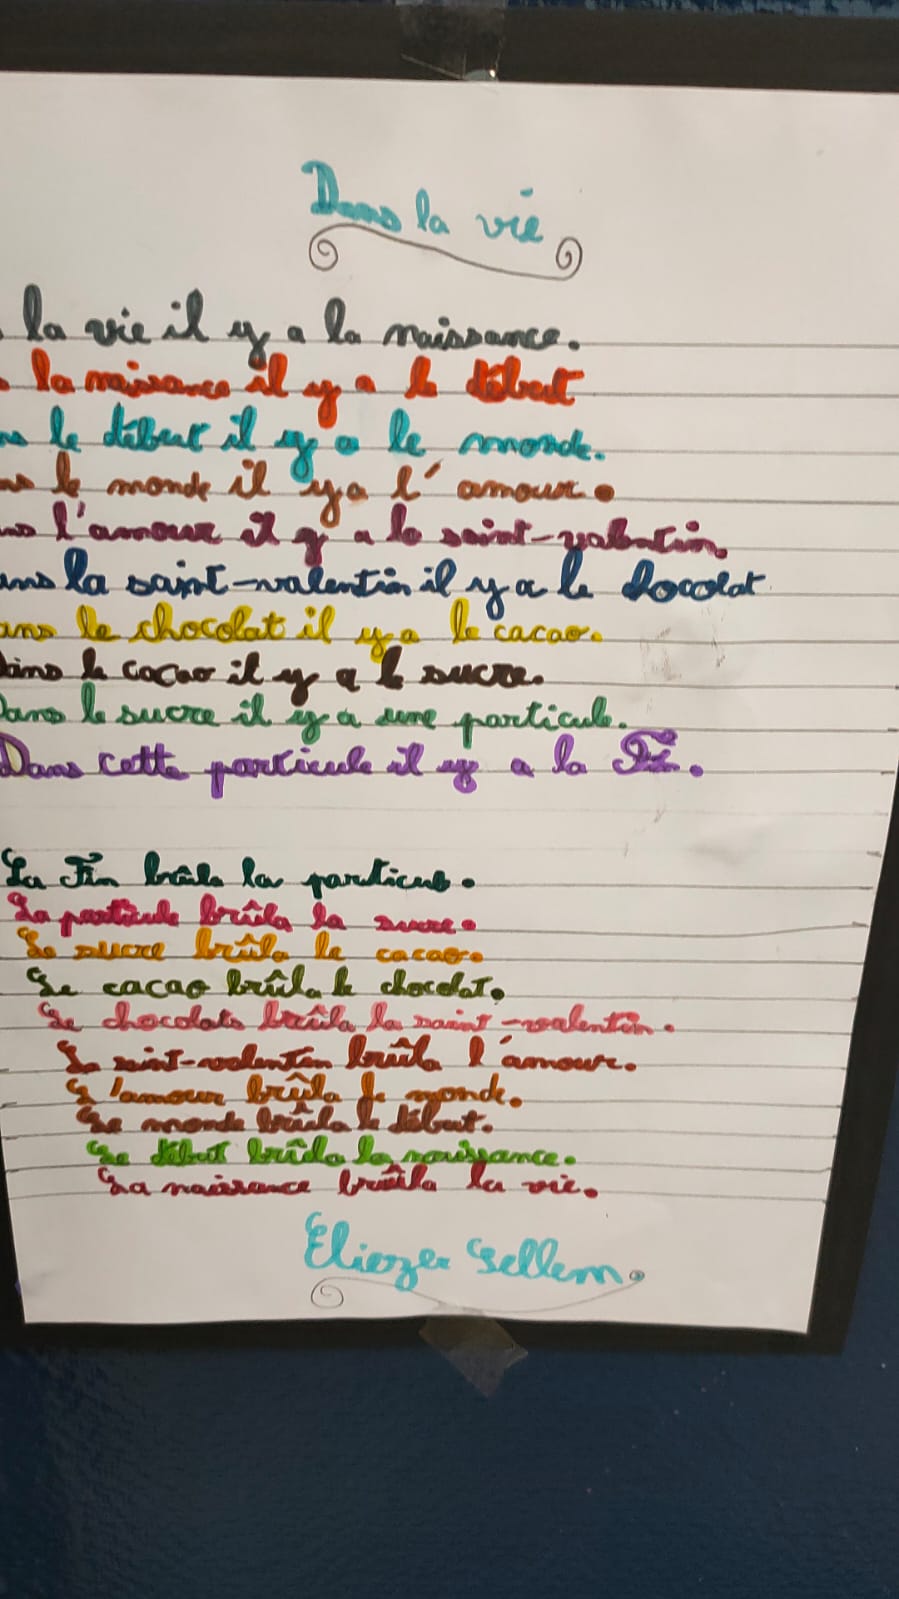 Dans la vie
la vie il y a la naissance.
la naissance il y a le début
ns le début il y a le monde.
ns le monde il y a l'amour.
ns l'amour il y a la saint-valentin.
ans la saint-valentin il y a le chocolat
ans le chocolat il y a le cacao.
Dans le cacao il y a le sucre.
Dans le sucre il y a une particule.
Dans cette particule il y a la Fin.
La Fin brûla la particule.
La particule brûla la sucre.
Le sucre brûla le cacao.
Le cacao brûla le chocolat.
Le chocolats brûla la saint-valentin.
La saint-valentin brûla l'amour.
L'amour brûla le monde.
Le monde brûla le début.
Le début brûla la naissance.
La naissance brûla la vie.
Eliezer Sellem.